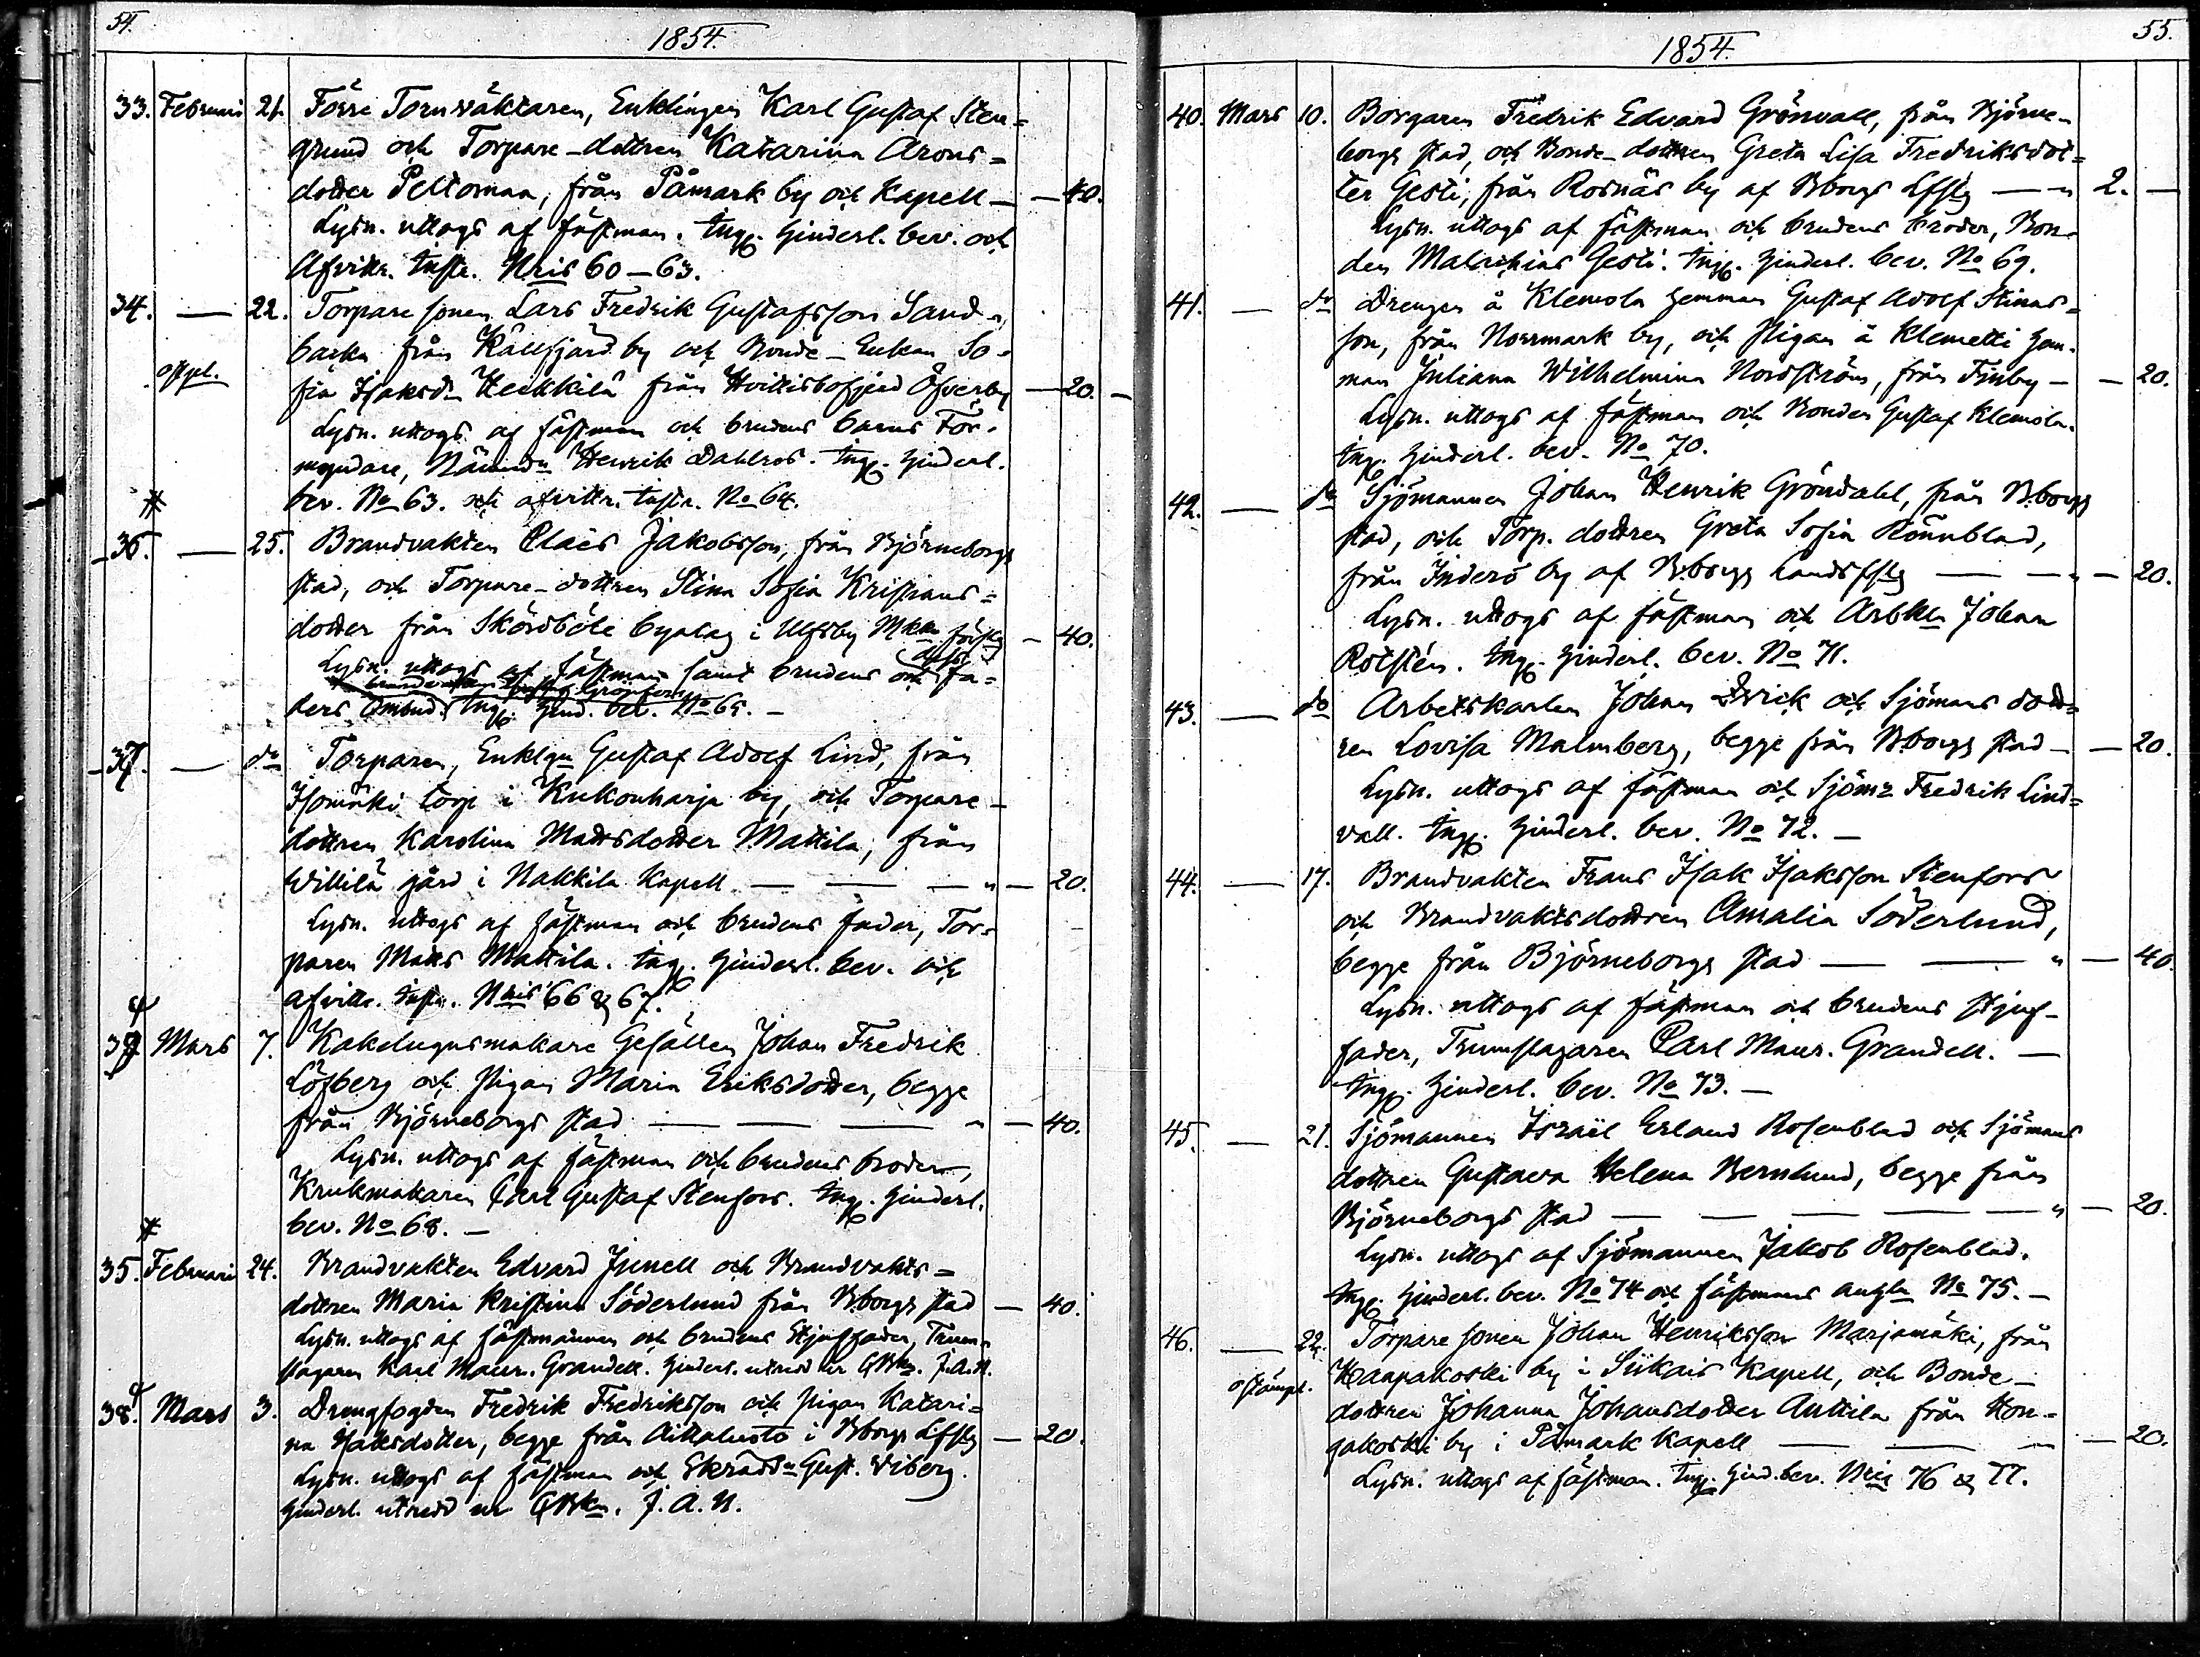 54.
1854.
33. Februari 21. Förre Tornväktaren, Enklingen Karl Gustaf Sten=
grund och Torpare-dottren Katarina Arons=
dotter Peltomaa, från Påmark by och Kapell — — 40.
Lysn. uttogs af fästman. Ingg. hinderl. bev. och
Afvittr. inste. Nris 60—63.
34. — 22. Torpare sonen Lars Fredrik Gustafsson Sand-
backa från Kållfjärd by och Bonde-Enkan So-
ostpl. fia Isaksdr Heikkilä från Hvittisbofjerd Öfverby — 20. —
Lysn. uttogs af fästman och brudens barns För-
myndare, Nämndn Henrik Dahlros. Ingg. hinderl.
bev. No 63. och afvittr. instr. No 64.
#
36. — 25. Brandvakten Claës Jakobsson, från Björneborgs
stad, och Torpare-dottren Stina Sofia Kristians=
dotter från Skördböle byalag i Ulfsby Mkn förslg — 40.
Lysn. uttogs af fästman samt brudens och fa=
ders Ombud. Ingg. hind. bev. No 65. —
37. — do Torparen, Enklgn Gustaf Adolf Lind, från
Isomäki torp i Kukonharja by, och Torpare-
dottren Karolina Mattsdotter Mattila, från
Willilä gård i Nakkila Kapell — — — " — 20.
Lysn. uttogs af fästman och brudens fader, Tor-
paren Matts Mattila. Ingg. hinderl. bev. och
afvittr. instr. Nris 66 & 67.
39 Mars 7. Kakelugnsmakare Gesällen Johan Fredrik
Löfberg och Pigan Maria Eriksdotter, begge
från Björneborgs stad — — — " — 40.
Lysn. uttogs af fästman och brudens broder,
Krukmakaren Carl Gustaf Stenfors. Ingg. hinderl.
bev. No 68. —
#
35. Februari 24. Brandvakten Edvard Junell och Brandvakts=
dottren Maria Kristina Söderlund från Bborgs stad — 40.
Lysn. uttogs af fästmannen och brudens Stjuffader, Trum-
slagaren Karl Maur. Grandell. Hinderl. utredd ur Bkn. J. A. N.
38. Mars 3. Drengfogden Fredrik Fredriksson och Pigan Katari=
na Mattsdotter, begge från Aittaluoto i Bborgs Lfslg — 20.
Lysn. uttogs af fästman och Skrädd Gust. Wiberg.
Hinderl. utredd ur Bkn. J. A. N.
55.
1854.
40. Mars 10. Borgaren Fredrik Edvard Grönvall, från Björne-
borgs stad, och Bonde-dottren Greta Lisa Fredriksdot=
ter Gesti, från Rosnäs by af Bborgs Lfslg — " 2. —
Lysn. uttogs af fästman och brudens broder, Bon-
den Malachias Gesti. Ingg. hinderl. bev. No 69.
41. — do Drengen å Klemola hemman Gustaf Adolf Stinas=
son, från Norrmark by, och Pigan å Klemetti hem-
man Juliana Wilhelmina Nordström, från Finby — — 20.
Lysn. uttogs af fästman och Bonden Gustaf Klemola.
Ingg. hinderl. bev. No 70.
42. — do Sjömannen Johan Henrik Gröndahl, från Bborgs
stad, och Torp. dottren Greta Sofia Rönnblad,
från Inderö by af Bborgs Landsfslg — — " — 20.
Lysn. uttogs af fästman och Arbkn Johan
Rotstén. Ingg. hinderl. bev. No 71.
43. — do Arbetskarlen Johan Dvick och Sjömans dott=
ren Lovisa Malmberg, begge från Bborgs stad — — 20.
Lysn. uttogs af fästman och Sjömn Fredrik Lind=
vall. Ingg. hinderl. bev. No 72. —
44. — 17. Brandvakten Frans Isak Isaksson Stenfors
och Brandvaktsdottren Amalia Söderlund,
begge från Björneborgs stad — — " — 40.
Lysn. uttogs af fästman och brudens stjuf-
fader, Trumslagaren Carl Maur. Grandell. —
Ingg. hinderl. bev. No 73. —
45. — 21. Sjömannen Israël Erland Rosenblad och Sjömans
dottren Gustava Helena Bernlund, begge från
Björneborgs stad — — — — " — 20.
Lysn. uttogs af Sjömannen Jakob Rosenblad.
Ingg. hinderl. bev. No 74 och fästmans No 75. —
46. — 22. Torpare sonen Johan Henriksson Marjamäki, från
ostämpl. Haapakoski by i Siikais Kapell, och Bonde-
dottren Johanna Johansdotter Anttila från Hon-
gakoski by i Påmark Kapell — — — — 20.
Lysn. uttogs af fästman. Ingg. hind. bev. Nris 76 & 77.